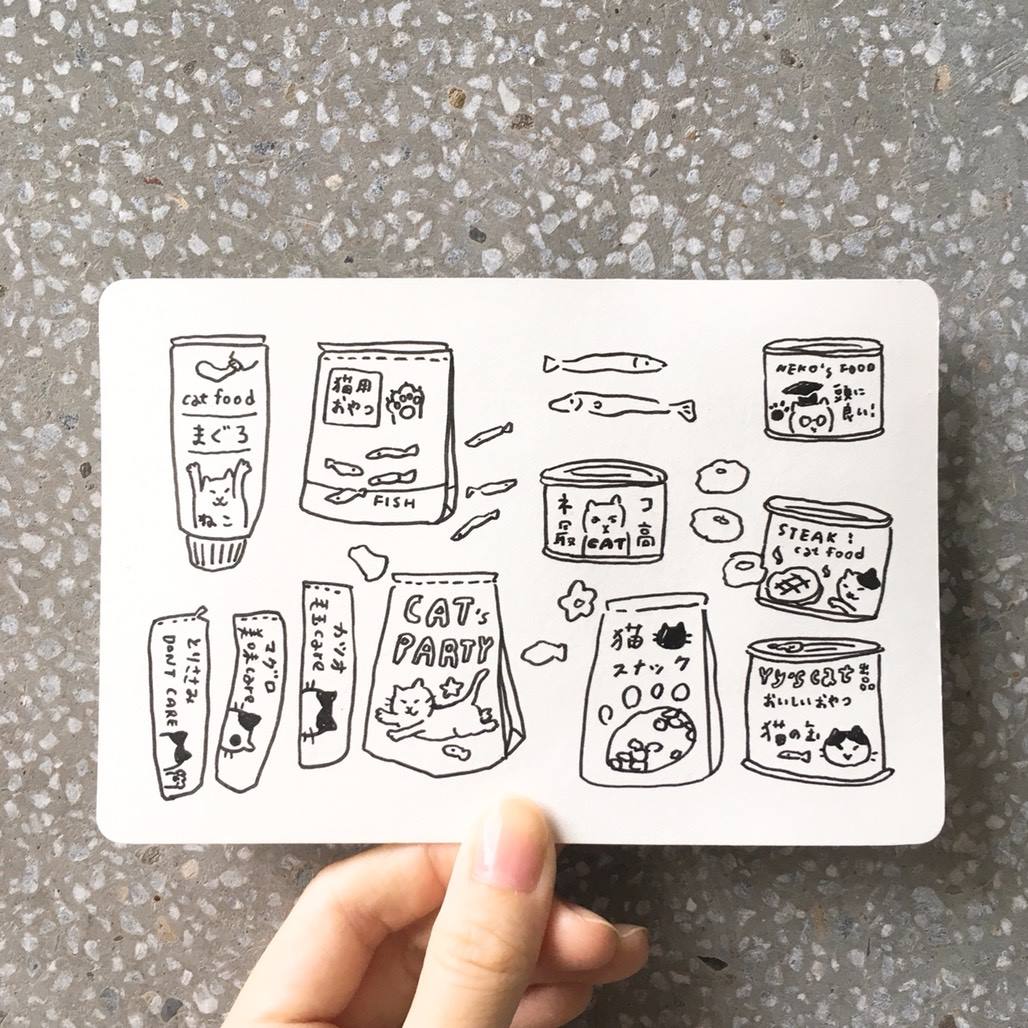 cat food
まぐろ
ねこ
猫用
おやつ
FISH
NEKO's FOOD
頭に
良い!
ネコ
最高
CAT
STEAK!
cat food
とりささみ
DON'T CARE
マグロ
美味care
カツオ
毛玉care
CAT's
PARTY
猫
スナック
YY's cat 出品
おいしいおやつ
猫の